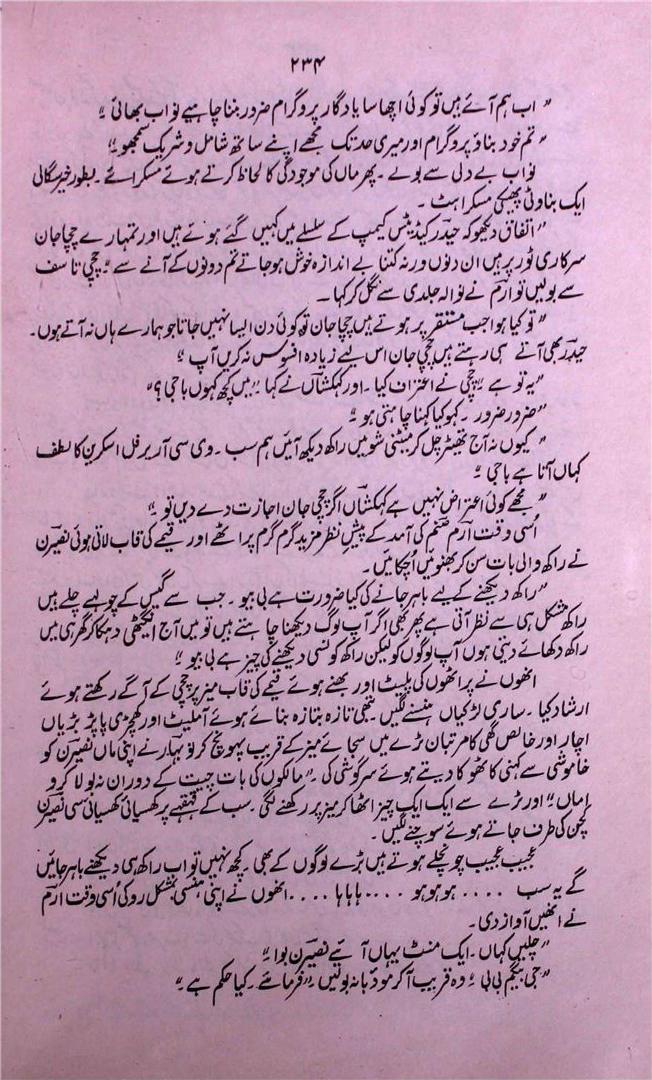 ۲۳۴
"اب ہم آئے ہیں تو کوئی اچھا سا یادگار پروگرام ضرور بننا چاہیے نواب بھائی"
"تم خود بناؤ پروگرام اور میری حد تک مجھے اپنے ساتھ شامل و شریک سمجھو"
نواب بے دلی سے بولے۔ پھر ماں کی موجودگی کا لحاظ کرتے ہوئے مسکرائے۔ بطور خیر سگالی
ایک بناوٹی پھیکی مسکراہٹ۔
"اتفاق دیکھو کہ حیدر کیڈیٹس کیمپ کے سلسلے میں کہیں گئے ہوئے ہیں اور تمہارے چچا جان
سرکاری ٹور پر ہیں ان دنوں ورنہ کتنا بے اندازہ خوش ہو جاتے تم دونوں کے آنے سے" چچی تاسف
سے بولیں تو ارم نے نوالہ جلدی سے نگل کر کہا۔
"تو کیا ہوا جب مستقر پر ہوتے ہیں چچا جان تو کوئی دن ایسا نہیں جاتا جو ہمارے ہاں نہ آتے ہوں۔
حیدر بھی آتے ہی رہتے ہیں چچی جان اس لیے زیادہ افسوس نہ کریں آپ"
"یہ تو ہے" چچی نے اعتراف کیا۔ اور کہکشاں نے کہا۔ "میں کچھ کہوں باجی؟"
"ضرور ضرور۔ کہو کیا کہنا چاہتی ہو"
"کیوں نہ آج تھیٹر چل کر میٹنی شو میں راکھ دیکھ آئیں ہم سب۔ وی سی آر پر فل اسکرین کا لطف
کہاں آتا ہے باجی"
"مجھے کوئی اعتراض نہیں ہے کہکشاں اگر چچی جان اجازت دے دیں تو"
اُسی وقت ارم صنم کی آمد کے پیشِ نظر مزید گرم گرم پراٹھے اور قیمے کی قاب لاتی ہوئی نصیرن
نے راکھ والی بات سن کر بھنویں اُچکائیں۔
"راکھ دیکھنے کے لیے باہر جانے کی کیا ضرورت ہے بی بیو۔ جب سے گیس کے چولہے چلے ہیں
راکھ مشکل ہی سے نظر آتی ہے پھر بھی اگر آپ لوگ دیکھنا چاہتے ہیں تو میں آج انگیٹھی دہکا کر گھر ہی میں
راکھ دکھائے دیتی ہوں آپ لوگوں کو لیکن راکھ کونسی دیکھنے کی چیز ہے بی بیو"
انھوں نے پراٹھوں کی پلیٹ اور بھنے ہوئے قیمے کی قاب میز پر چچی کے آگے رکھتے ہوئے
ارشاد کیا۔ ساری لڑکیاں ہنسنے لگیں۔ تبھی تازہ بتازہ بنائے ہوئے آملیٹ اور کھچڑی پاپڑ بڑیاں
اچار اور خالص گھی کا مرتبان ٹرے میں سجائے میز کے قریب پہونچ کر نو بہار نے اپنی ماں نصیرن کو
خاموشی سے کہنی کا ٹھوکا دیتے ہوئے سرگوشی کی۔ "مالکوں کی بات چیت کے دوران نہ بولا کرو
اماں" اور ٹرے سے ایک ایک چیز اٹھا کر میز پر رکھنے لگی۔ سب کے قہقہے پر کھسیانی کھسیانی سی نصیرن
کچن کی طرف جاتے ہوئے سوچنے لگیں۔
عجیب عجیب چونچلے ہوتے ہیں بڑے لوگوں کے بھی۔ کچھ نہیں تو اب راکھ ہی دیکھنے باہر جائیں
گے یہ سب .... ہو ہو ہو .... ہا ہا ہا .... انھوں نے اپنی ہنسی بمشکل روکی اُسی وقت ارم
نے انھیں آواز دی۔
"چلیں کہاں۔ ایک منٹ یہاں آئیے نصیرن بوا"
"جی بیگم بی بی" وہ قریب آ کر مودبانہ بولیں۔ "فرمائیے۔ کیا حکم ہے۔"